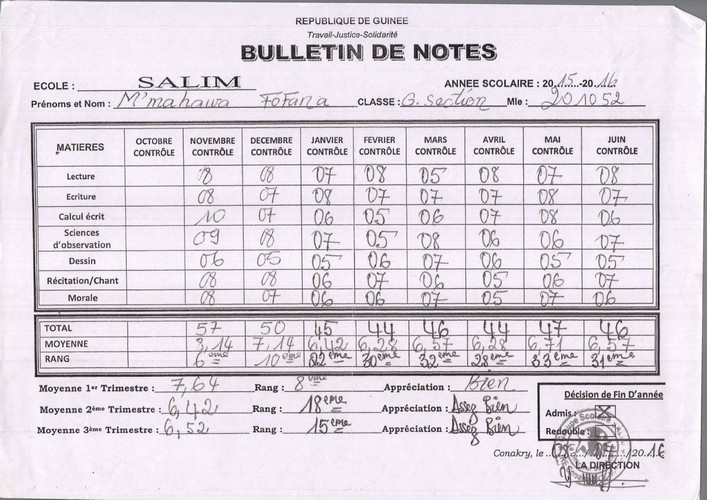 REPUBLIQUE DE GUINEE
Travail-Justice-Solidarité
BULLETIN DE NOTES
ECOLE : SALIM ANNEE SCOLAIRE : 2015-2016
Prénoms et Nom : M'mahawa Fofana CLASSE : G. Section Mle : 201052
MATIERES OCTOBRE CONTRÔLE NOVEMBRE CONTRÔLE DECEMBRE CONTRÔLE JANVIER CONTRÔLE FEVRIER CONTRÔLE MARS CONTRÔLE AVRIL CONTRÔLE MAI CONTRÔLE JUIN CONTRÔLE
Lecture 8 08 07 08 05 08 07 08
Ecriture 08 07 08 07 07 07 08 07
Calcul écrit 10 07 06 05 06 07 08 06
Sciences d'observation 09 08 07 05 08 06 06 07
Dessin 06 05 05 06 07 06 05 05
Récitation/Chant 08 08 06 07 06 05 06 07
Morale 08 07 06 06 07 05 07 06
TOTAL 57 50 45 44 46 44 47 46
MOYENNE 8,14 7,14 6,42 6,28 6,57 6,28 6,71 6,57
RANG 6ème 10ème 32ème 30ème 32ème 28ème 33ème 31ème
Moyenne 1er Trimestre : 7,64 Rang : 8ème Appréciation : Bien
Moyenne 2ème Trimestre : 6,42 Rang : 18ème Appréciation : Assez Bien
Moyenne 3ème Trimestre : 6,52 Rang : 15ème Appréciation : Assez Bien
Décision de Fin D'année
Admis : X
Redouble :
Conakry, le 08/07/2016
LA DIRECTION